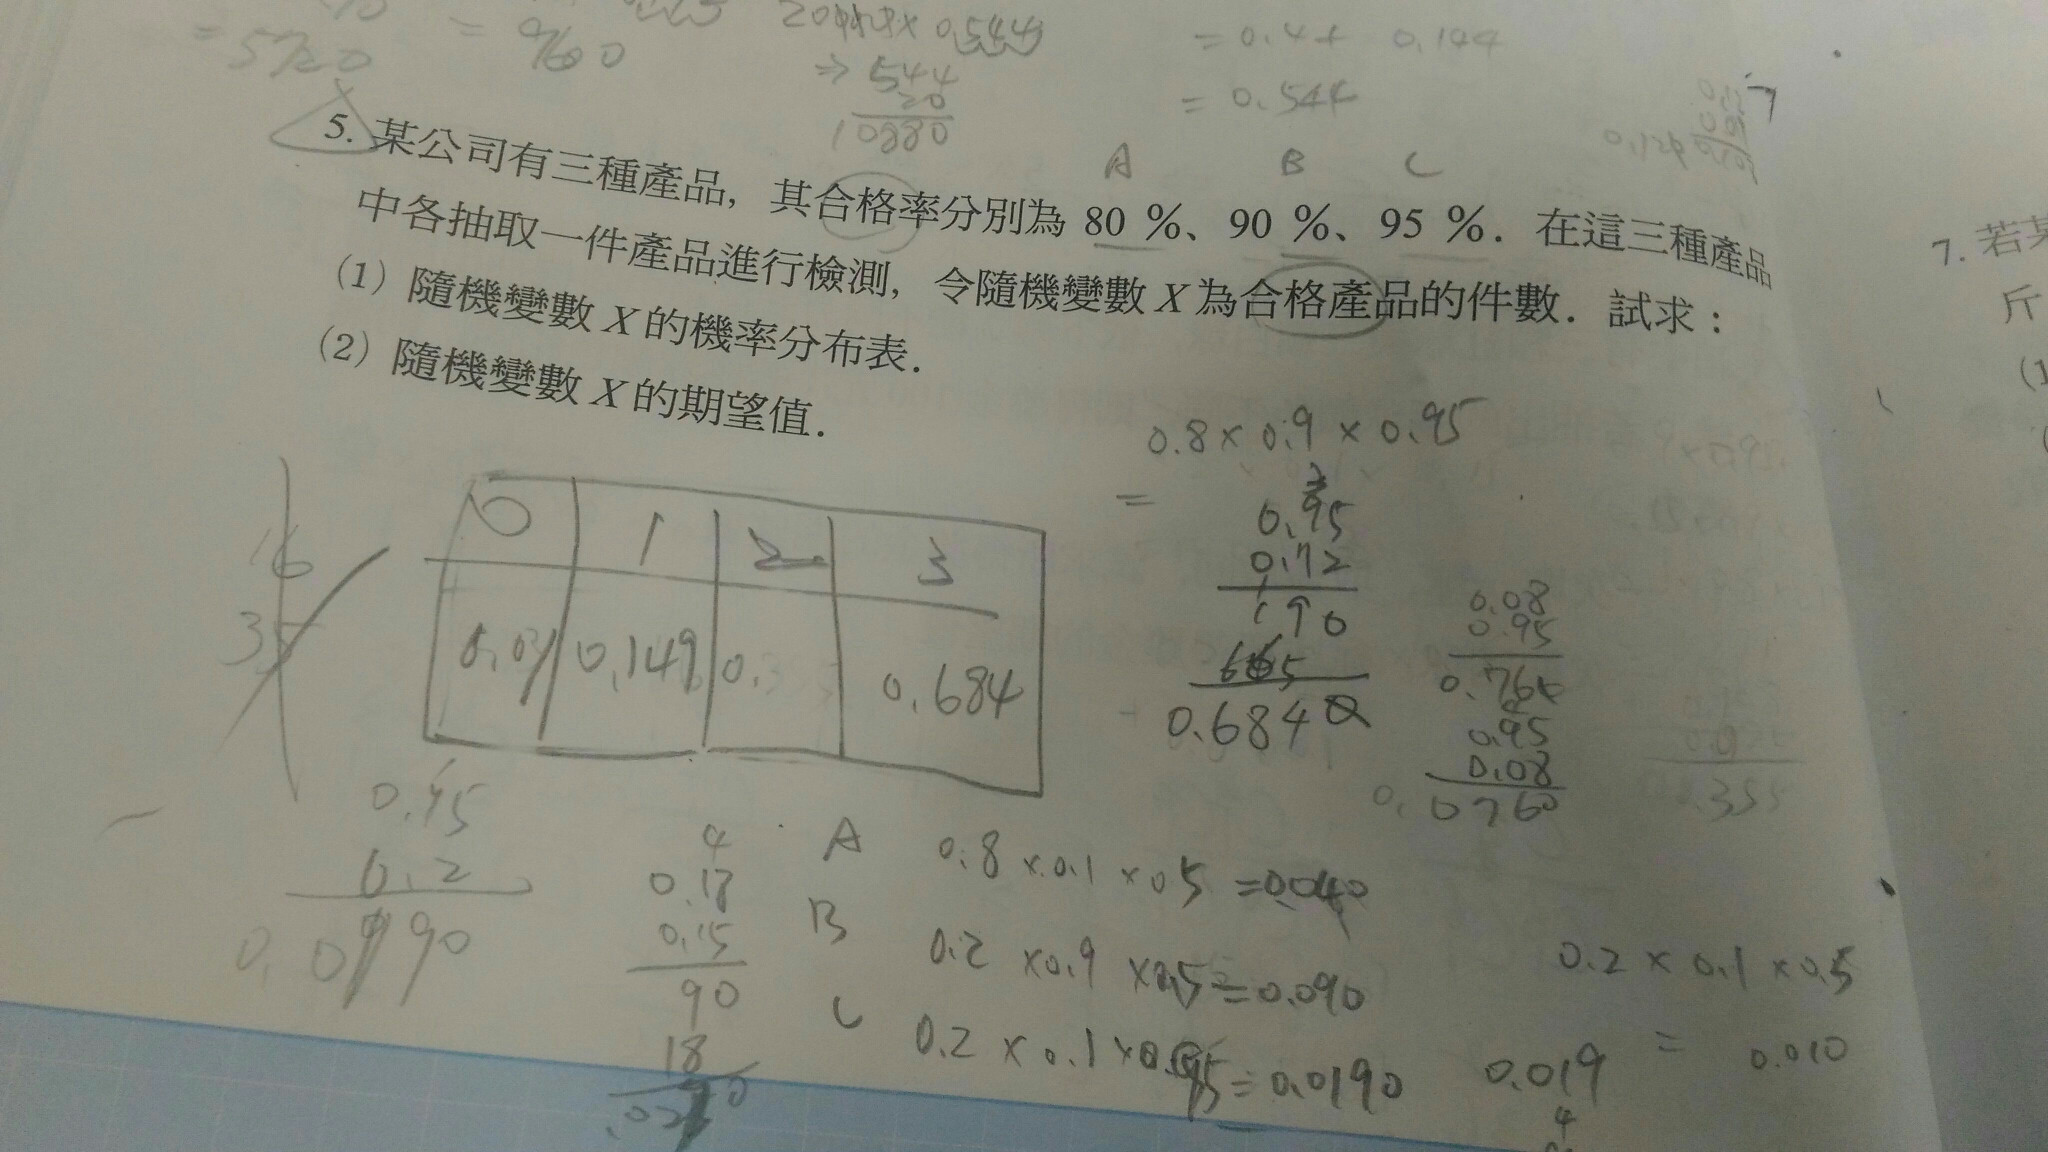 = 5720
= 960
× 0.544
⇒ 544
20
10880
= 0.4 + 0.144
= 0.544
A B C
5. 某公司有三種產品，其合格率分別為 80 %、90 %、95 %．在這三種產品
中各抽取一件產品進行檢測，令隨機變數 X 為合格產品的件數．試求：
(1) 隨機變數 X 的機率分布表．
(2) 隨機變數 X 的期望值．
7. 若某
斤
(1
0.8 × 0.9 × 0.95
=
0.95
0.72
190
665
0.6840
0.08
0.95
0.95
0.08
0760
0 1 2 3
0.01 0.149 0. 0.684
16
35
0.2
0.18
0.15
90
18
A 0.8 × 0.1 × 0.5 = 0.040
B 0.2 × 0.9 × 0.5 = 0.090
C 0.2 × 0.1 × 0.95 = 0.0190
0.2 × 0.1 × 0.5
= 0.010
0.019
4